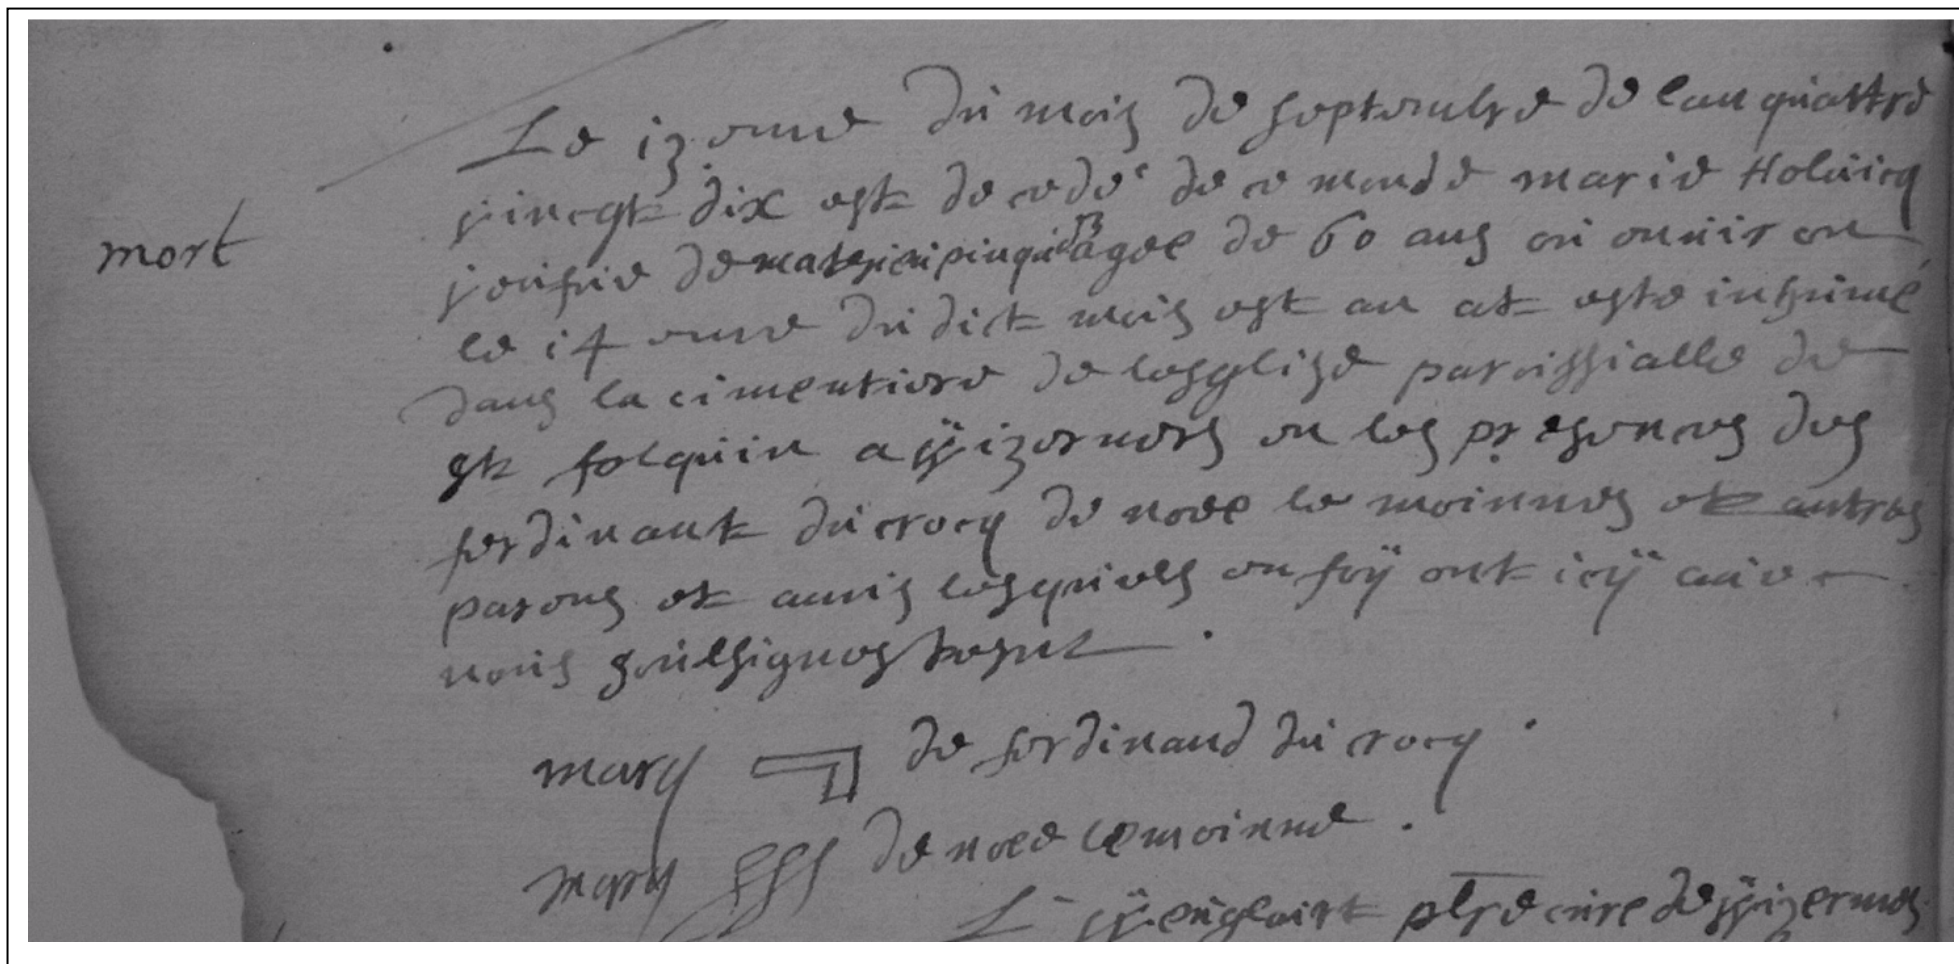 Le 13 eme du mois de septembre de l an quattre
vincgt dix est decedé de ce monde marie Holuicq
mort
voeufue de age de 60 ans ou enuiron
le 14 eme du dict mois est an at este inhumé
dans la cimentiere de lesglise paroissialle de
st folquin a ÿizernes en les presences des
ferdinant du crocq de noel le moinnes et autres
parens et amis lesquiels en foÿ ont icÿ auec
nous soubsignes
marq de ferdinand du crocq
marq de noel lemoinne
cure de